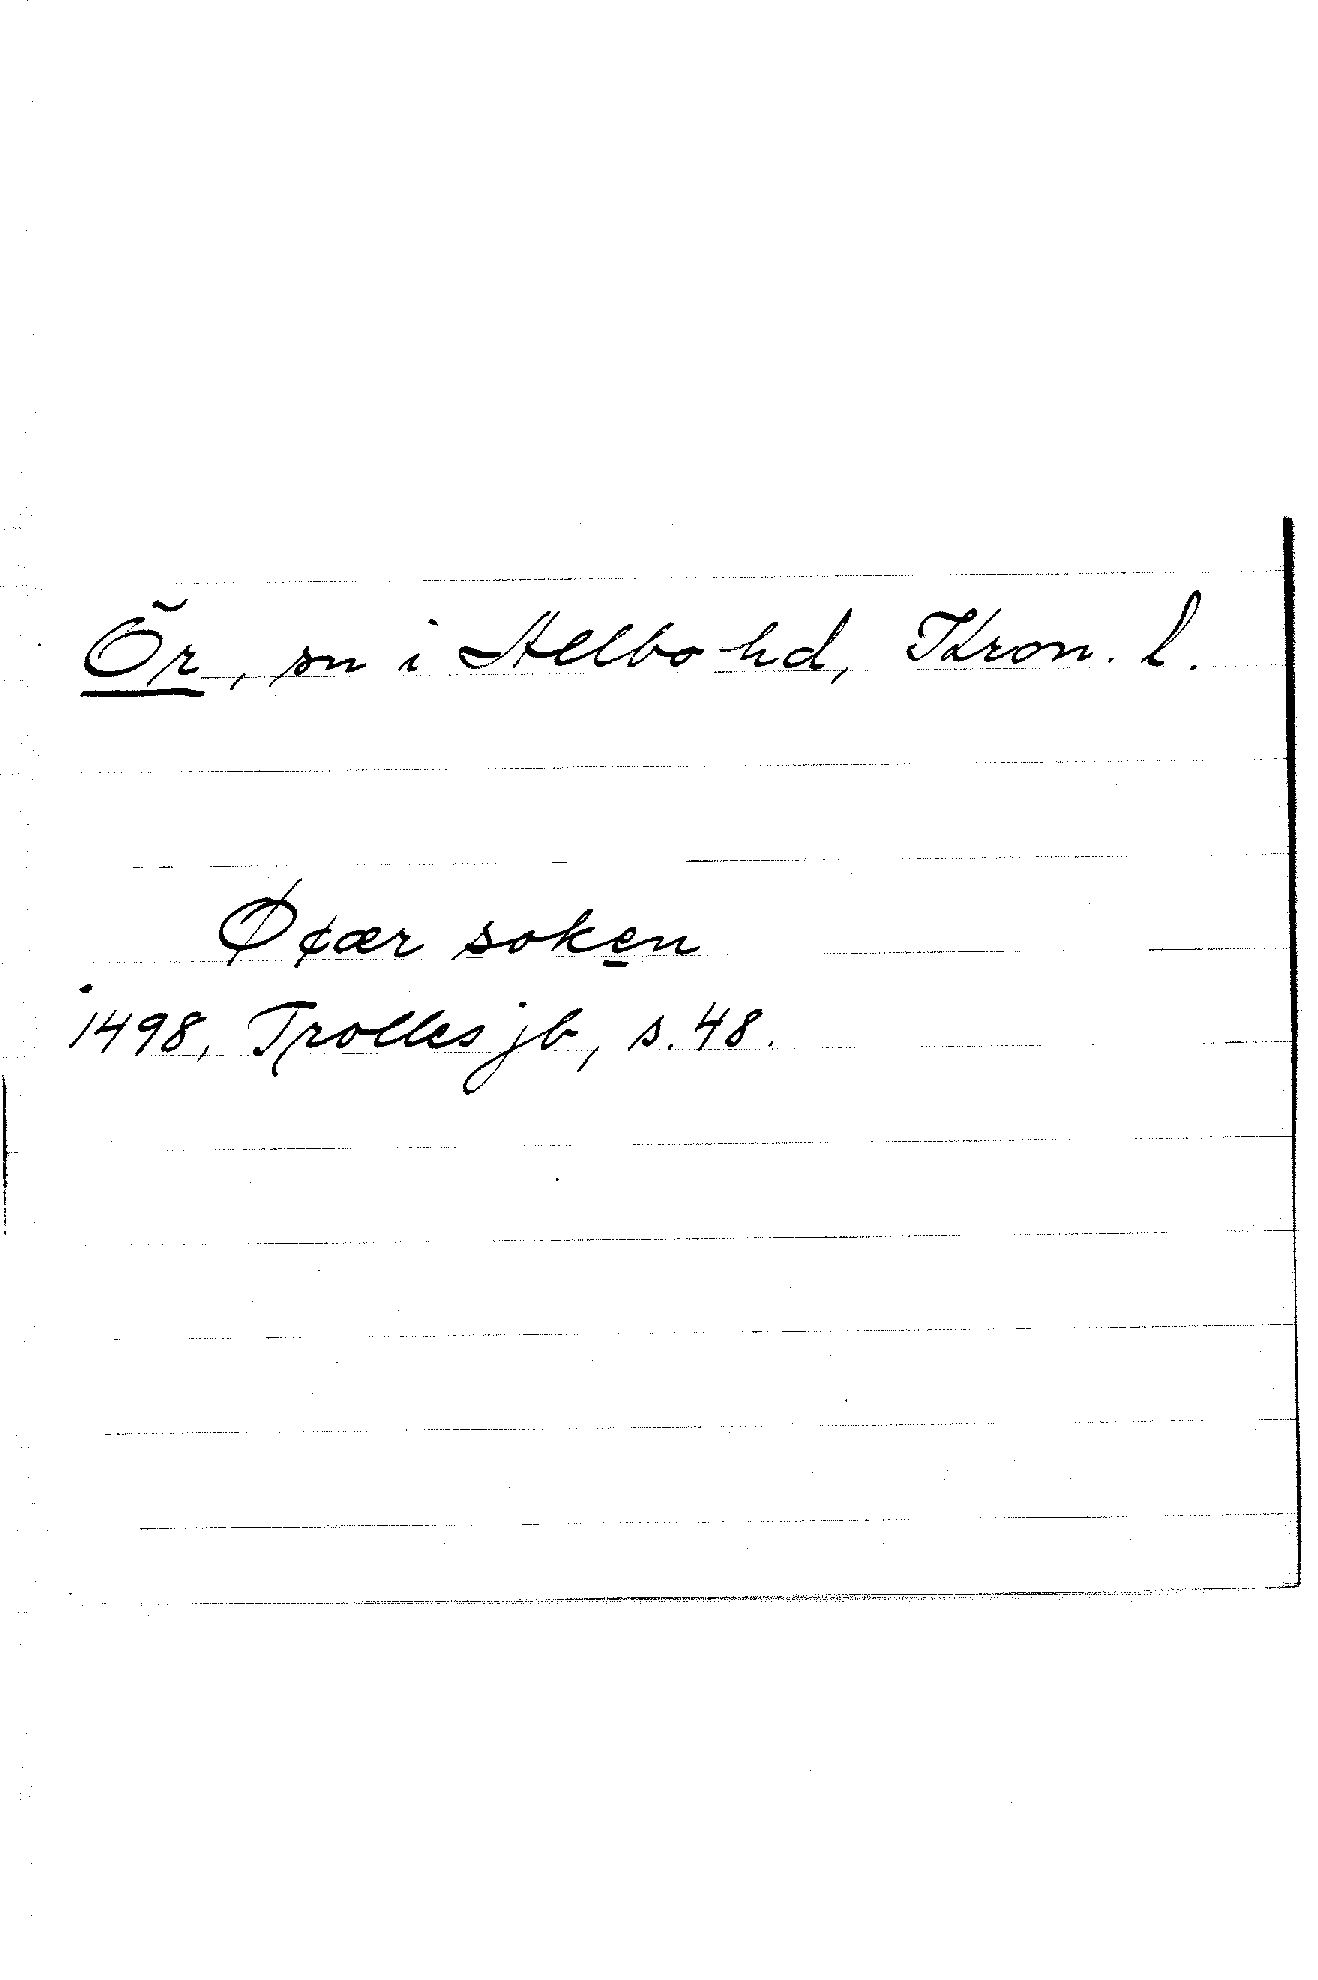 Ör, sn i Allbo hd, Kron. l.
Øøær soken
1498, Trolles jb, s. 48.